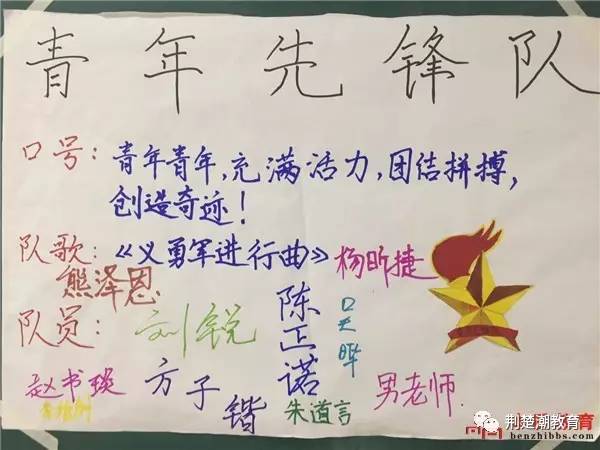 青年先锋队
口号：青年青年，充满活力，团结拼搏，
创造奇迹！
队歌：《义勇军进行曲》 杨昕捷
熊泽恩
队员：刘锐 陈正诺
赵书琰 方子锴 朱道言 男老师
荆楚潮教育
benzhibbs.com